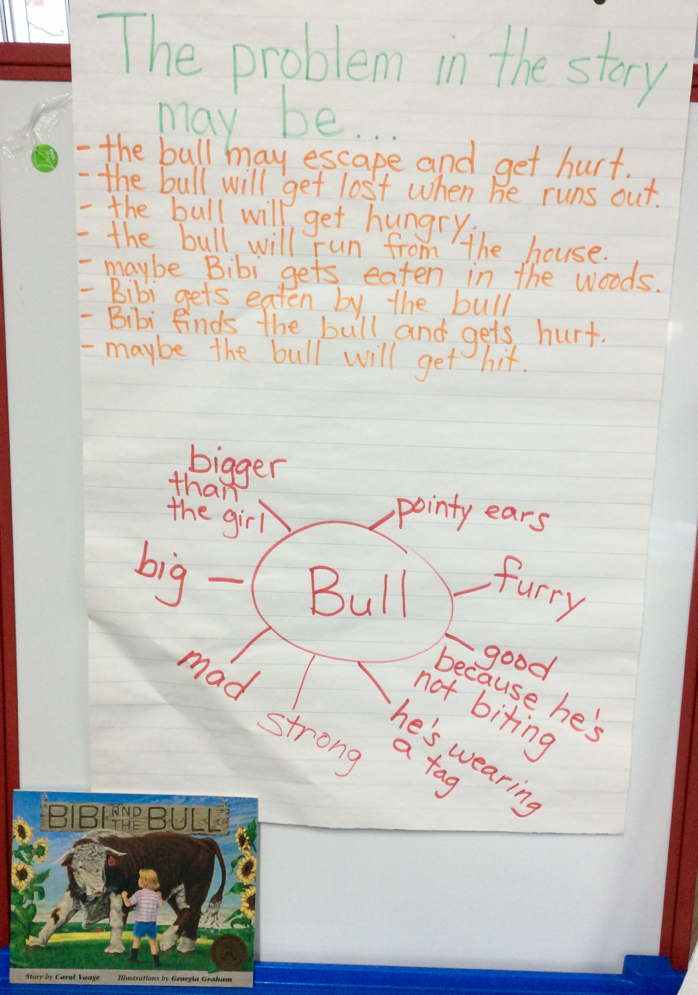 The problem in the story
may be...
- the bull may escape and get hurt.
- the bull will get lost when he runs out.
- the bull will get hungry.
- the bull will run from the house.
- maybe Bibi gets eaten in the woods.
- Bibi gets eaten by the bull
- Bibi finds the bull and gets hurt.
- maybe the bull will get hit.
bigger
than
the girl
pointy ears
big
Bull
furry
mad
strong
good
because he's
not biting
he's wearing
a tag
BIBI AND THE BULL
Story by Carol Vaage Illustrations by Georgia Graham